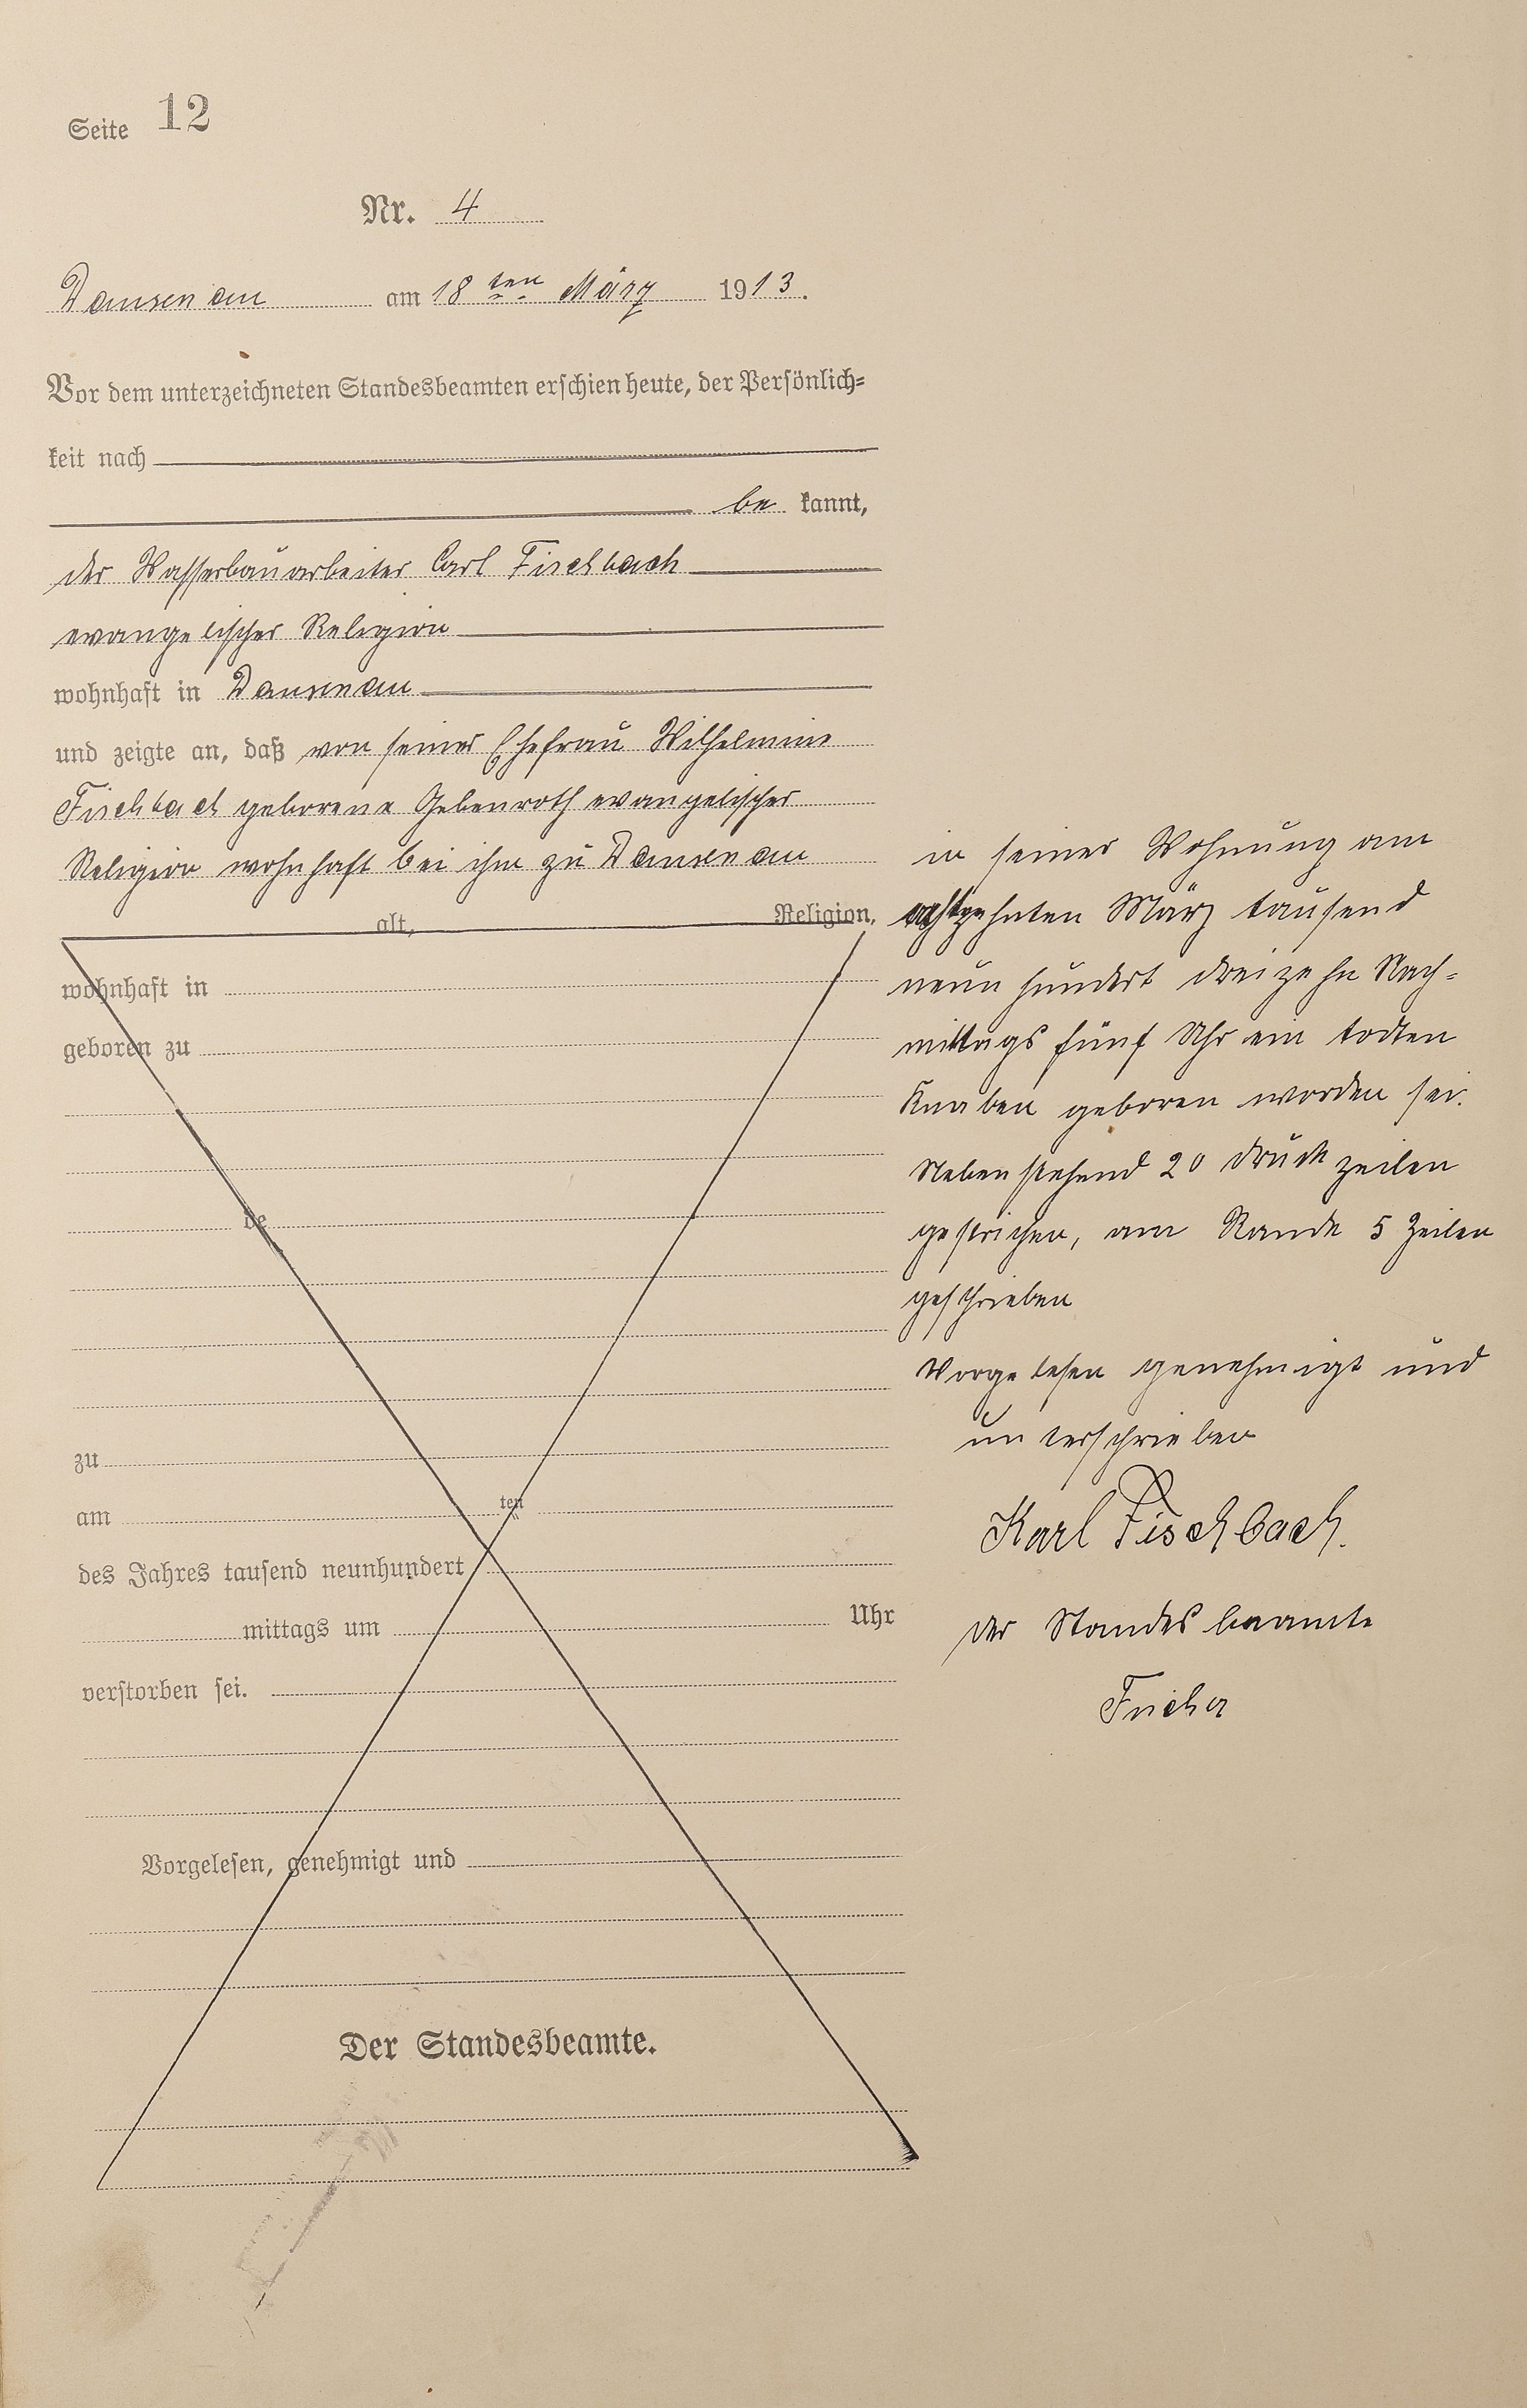 Seite 12
Nr. 4
Dausenau am 18ten März 1913.
Vor dem unterzeichneten Standesbeamten erschien heute, der Persönlich=
keit nach
be kannt,
der Wasserbauarbeiter Carl Fischbach
evangelischer Religion
wohnhaft in Dausenau
und zeigte an, daß von seiner Ehefrau Wilhelmine
Fischbach geborene Gebenroth evangelischer
Religion wohnhaft bei ihm zu Dausenau
alt, Religion,
wohnhaft in
geboren zu
de
zu
am ten
des Jahres tausend neunhundert
mittags um Uhr
verstorben sei.
Vorgelesen, genehmigt und
Der Standesbeamte.
in seiner Wohnung am
achtzehnten März tausend
neun hundert dreizehn Nach=
mittags fünf Uhr ein todten
Knaben geboren worden sei.
Nebenstehend 20 Druckzeilen
gestrichen, am Rande 5 Zeilen
geschrieben
Vorgelesen genehmigt und
unterschrieben
Karl Fischbach.
Der Standesbeamte